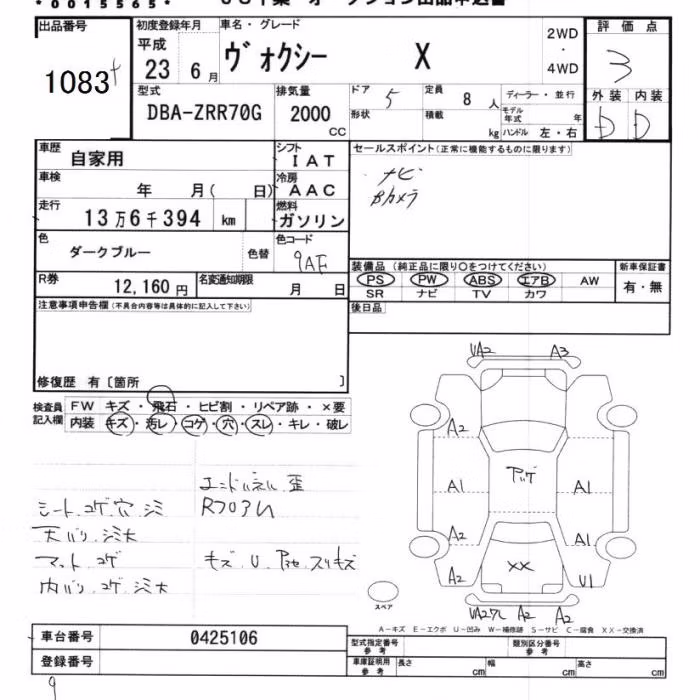 *0015565*
出品番号
1083
初度登録年月
平成
23 6月
車名・グレード
ヴォクシー X
2WD
・
4WD
評価点
3
外装 内装
D D
型式
DBA-ZRR70G
排気量
2000
CC
ドア 5
定員 8 人
ディーラー・並行
形状
積載 kg
モデル年式 年
ハンドル 左・右
車歴
自家用
シフト
IAT
車検
年 月( 日)
冷房
AAC
走行
13万6千394 km
燃料
ガソリン
色
ダークブルー
色替
色コード
9AF
R券
12,160円
名変通知期限
月 日
セールスポイント(正常に機能するものに限ります)
ナビ
Bカメラ
装備品 (純正品に限り〇をつけてください)
PS PW ABS エアB AW
SR ナビ TV カワ
新車保証書
有・無
後日品
注意事項申告欄(不具合内容等は具体的に記入して下さい)
修復歴 有〔箇所 〕
検査員記入欄
FW キズ・飛石・ヒビ割・リペア跡・×要
内装 キズ・汚レ・コゲ・穴・スレ・キレ・破レ
エンドパネル 歪
シート コゲ 穴 シミ
RフロアU
天バリ シミ大
マット コゲ
キズ U
スリキズ
内バリ コゲ シミ大
UA2 A3
A2
アゲ
A1 A1
A2 A1
A2 XX U1
A2 A2
スペア
A-キズ E-エクボ U-凹み W-補修跡 S-サビ C-腐食 XX-交換済
車台番号
0425106
登録番号
型式指定番号
参考
類別区分番号
参考
車庫証明用
参考
長さ cm 幅 cm 高さ cm
9